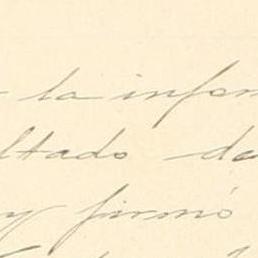 la infor
ltado de
y firmó